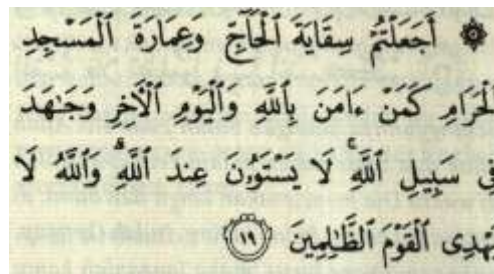 ۞ أَجَعَلْتُمْ سِقَايَةَ ٱلْحَآجِّ وَعِمَارَةَ ٱلْمَسْجِدِ
ٱلْحَرَامِ كَمَنْ ءَامَنَ بِٱللَّهِ وَٱلْيَوْمِ ٱلْأَخِرِ وَجَٰهَدَ
فِى سَبِيلِ ٱللَّهِ ۚ لَا يَسْتَوُۥنَ عِندَ ٱللَّهِ ۗ وَٱللَّهُ لَا
يَهْدِى ٱلْقَوْمَ ٱلظَّٰلِمِينَ ١٩